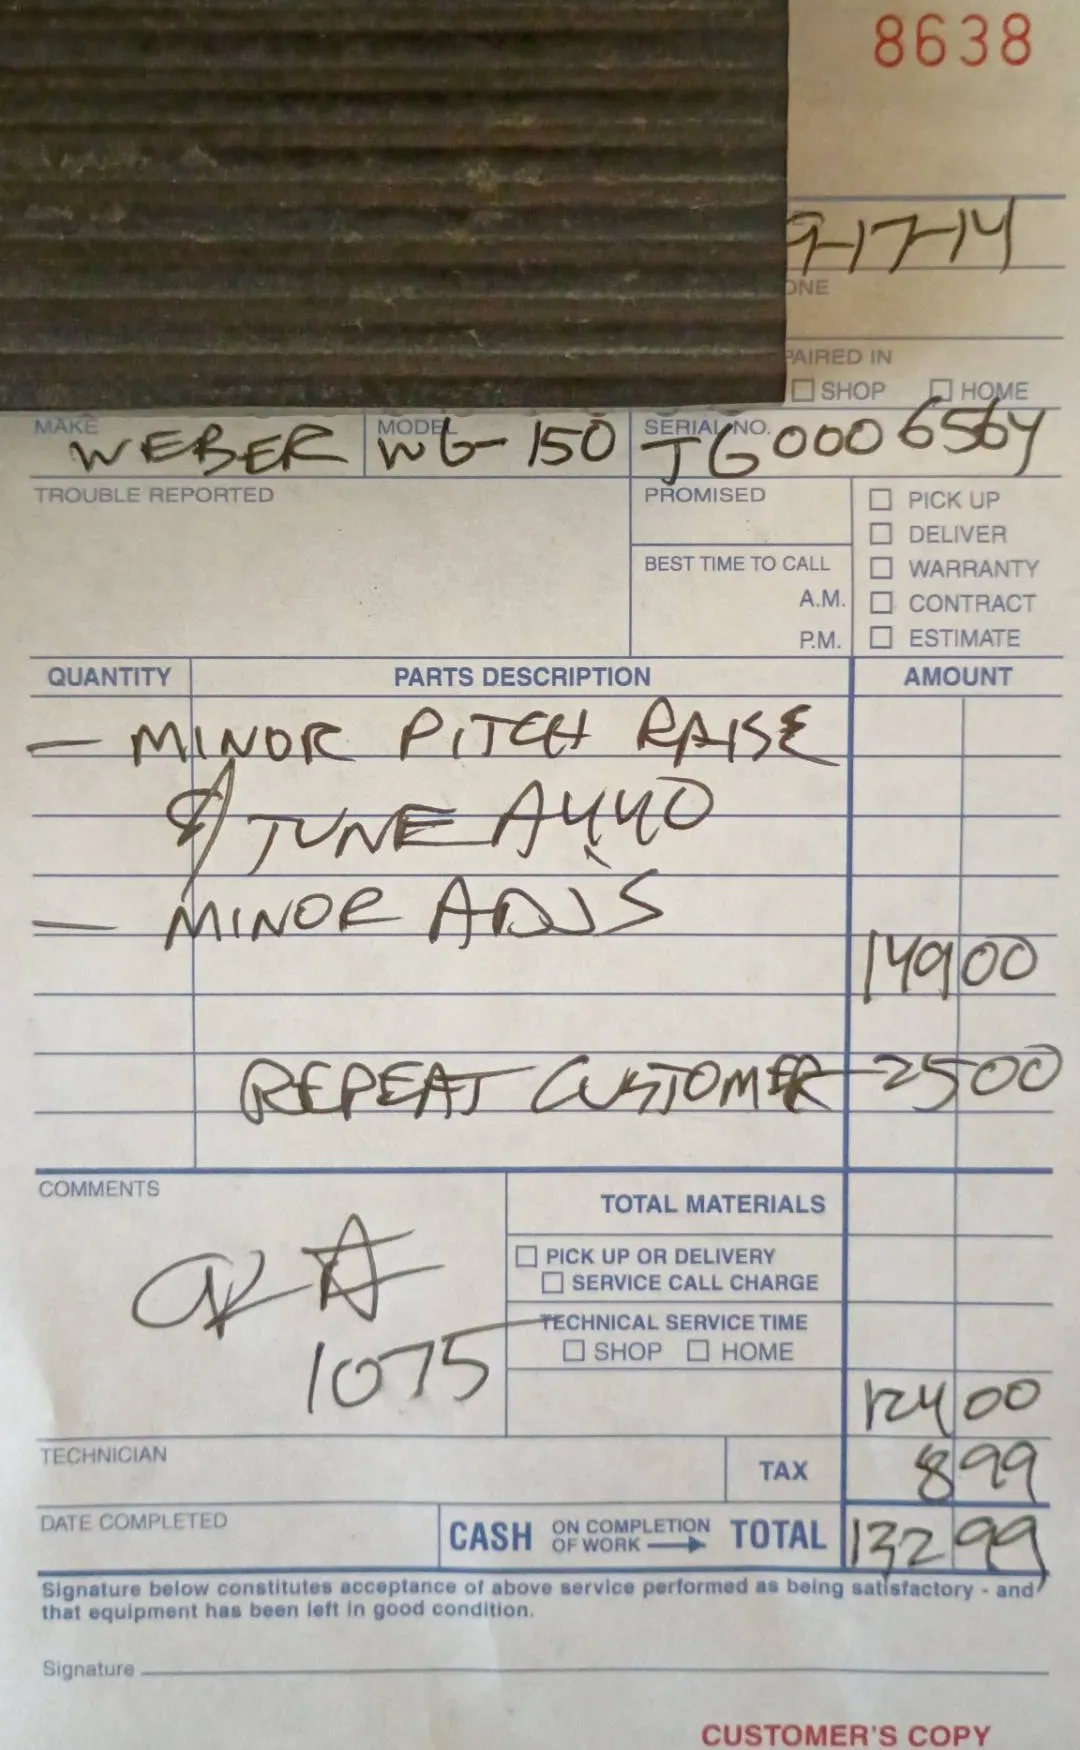 8638
9-17-14
ONE
PAIRED IN
SHOP HOME
MAKE MODEL SERIAL NO.
WEBER WG-150 JG0006564
TROUBLE REPORTED PROMISED
PICK UP
DELIVER
BEST TIME TO CALL WARRANTY
A.M. CONTRACT
P.M. ESTIMATE
QUANTITY PARTS DESCRIPTION AMOUNT
— MINOR PITCH RAISE
& TUNE A440
— MINOR ADJS
149 00
REPEAT CUSTOMER - 25 00
COMMENTS
TOTAL MATERIALS
PICK UP OR DELIVERY
SERVICE CALL CHARGE
TECHNICAL SERVICE TIME
SHOP HOME
1075
124 00
TECHNICIAN TAX 8 99
DATE COMPLETED CASH ON COMPLETION OF WORK TOTAL 132 99
Signature below constitutes acceptance of above service performed as being satisfactory - and
that equipment has been left in good condition.
Signature
CUSTOMER'S COPY